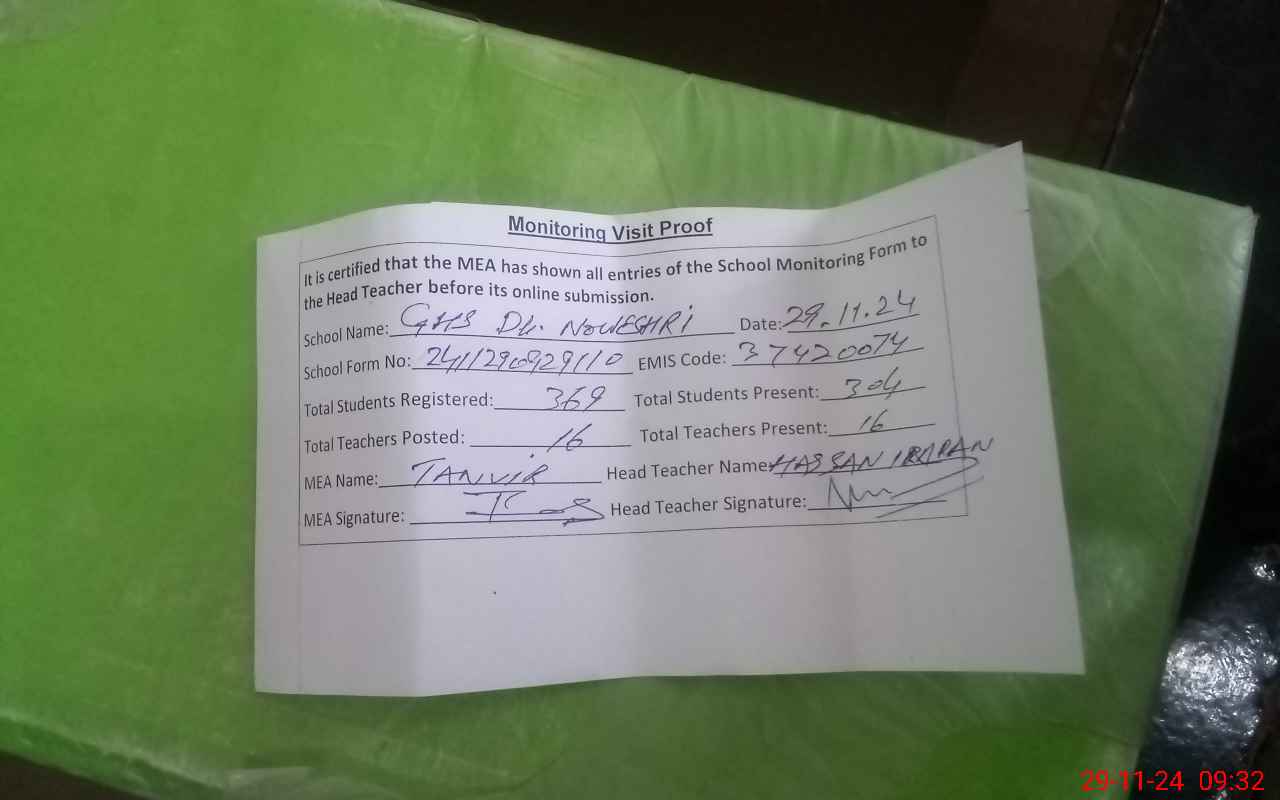 Monitoring Visit Proof
It is certified that the MEA has shown all entries of the School Monitoring Form to
the Head Teacher before its online submission.
School Name: GHS Dk. NOWESHRI Date: 29.11.24
School Form No: 2411290929110 EMIS Code: 37420074
Total Students Registered: 369 Total Students Present: 304
Total Teachers Posted: 16 Total Teachers Present: 16
MEA Name: TANVIR Head Teacher Name: HASSAN
MEA Signature: Head Teacher Signature:
29-11-24 09:32